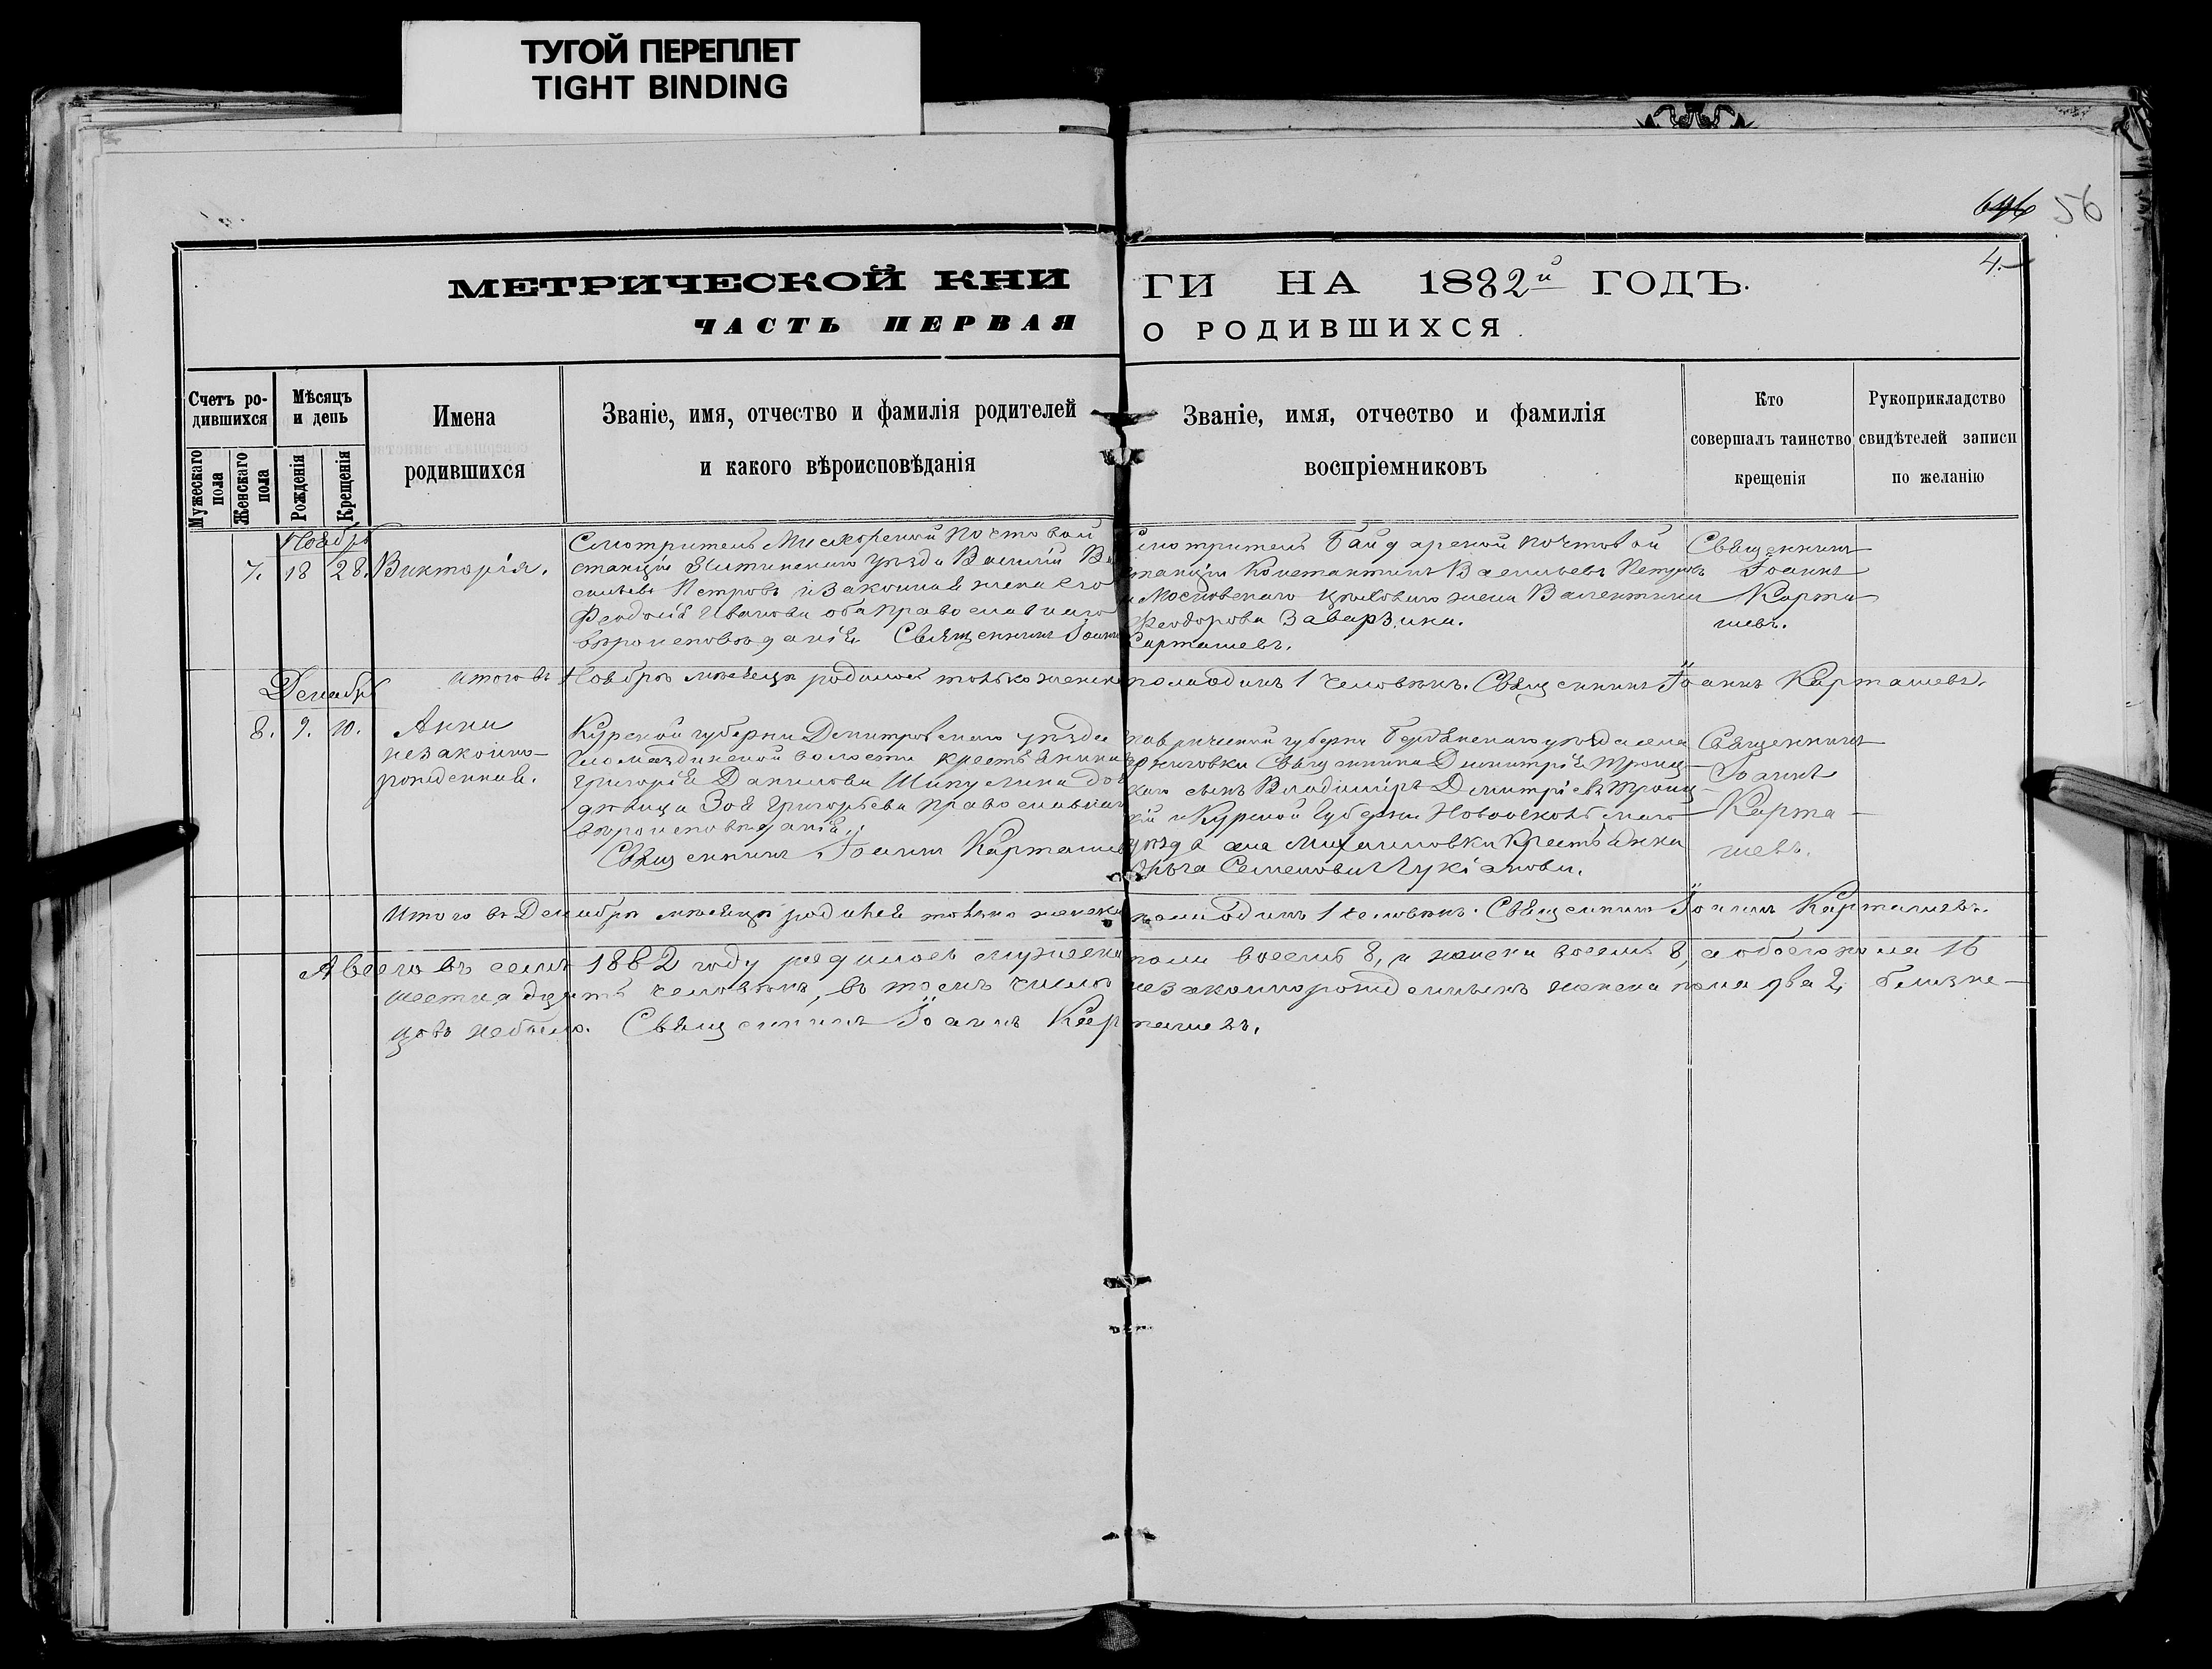 ТУГОЙ ПЕРЕПЛЕТ
TIGHT BINDING
56
4.
МЕТРИЧЕСКОЙ КНИ ГИ НА 1882й ГОДЪ.
ЧАСТЬ ПЕРВАЯ О РОДИВШИХСЯ.
Счетъ ро-
дившихся
Мужескаго пола
Женскаго пола
Мѣсяцъ
и день
Рожденія
Крещенія
Имена
родившихся
Званіе, имя, отчество и фамилія родителей
и какого вѣроисповѣданія
Званіе, имя, отчество и фамилія
воспріемниковъ
Кто
совершалъ таинство
крещенія
Рукоприкладство
свидѣтелей записи
по желанію
Ноабрь
7. 18 28. Викторія.
Смотритель Мисхорской почтовой
станціи Ялтинскаго уѣзда Василій Ва
сильевъ Петровъ и законная жена его
Феодосія Иванова оба православнаго
вѣроисповѣданія. Священникъ Іоаннъ
Смотритель Байдарской почтовой
станціи Константинъ Васильевъ Петровъ
и Московскаго жена Валентина
Феодорова Заварзина.
Карташевъ.
Священникъ
Іоаннъ
Карта
шевъ.
Итого въ Ноабрѣ мѣсяцѣ родилось только женска пола одинъ 1 человѣкъ. Священникъ Іоаннъ Карташевъ.
Декабрь
8. 9. 10. Анна
незаконно-
рожденная.
Курской губерніи Дмитровскаго уѣзда
волости крестьянина
Григорія Данилова Шипулина до
дѣвица Зоя Григорьева православнаго
вѣроисповѣданія.
Священникъ Іоаннъ Карташевъ
Таврической губерніи Бердянскаго уѣзда села
Черниговки Священника Димитрія Троиц-
каго сынъ Владиміръ Димитріевъ Троиц-
кій и Курской Губерніи Новооскольскаго
уѣзда села Михайловки Крестьянка
Ольга Семенова Лукіанова.
Священникъ
Іоаннъ
Карта-
шевъ.
Итого въ Декабрѣ мѣсяцѣ родилось только женска пола одинъ 1 человѣкъ. Священникъ Іоаннъ Карташевъ.
А всего въ семъ 1882 году родилось мужеска пола восемь 8, и женска восемь 8, а обоего пола 16
шестнадцать человѣкъ, въ томъ числѣ незаконнорожденныхъ женска пола два 2, близне-
цовъ не было. Священникъ Іоаннъ Карташевъ.